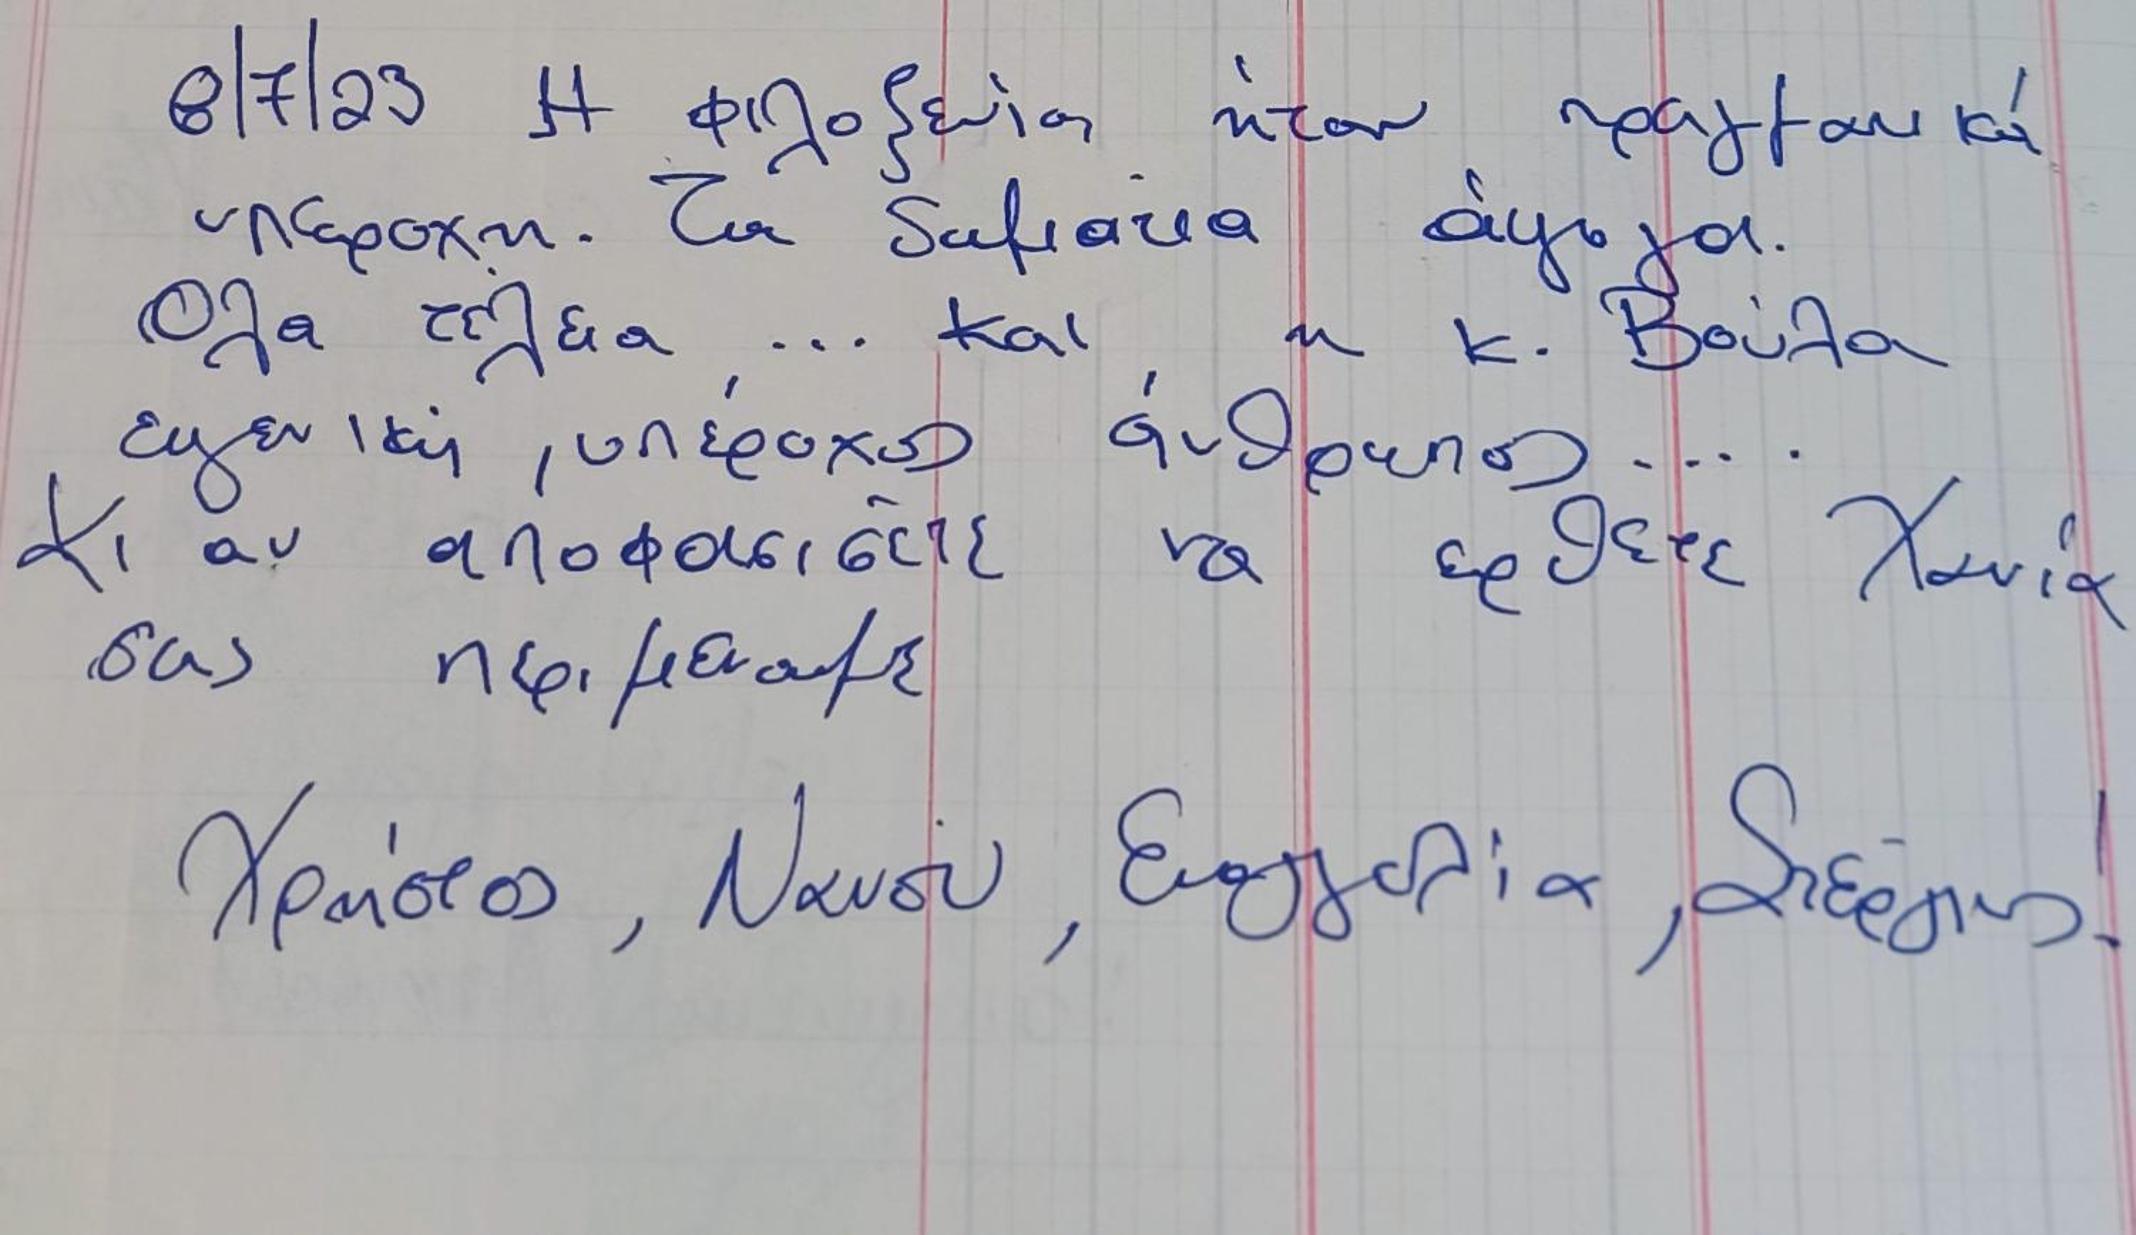 8/7/23 Η φιλοξενία ήταν πραγματική
υπεροχη. Τα δωμάτια άψογα.
Ολα τέλεια ... και η κ. Βούλα
ευγενική, υπέροχος άνθρωπος ....
Κι αν αποφασισετε να ερθετε Χανιά
σας περιμενουμε
Χρήστος, Νανσύ, Ευαγγελία, Στέργιος!